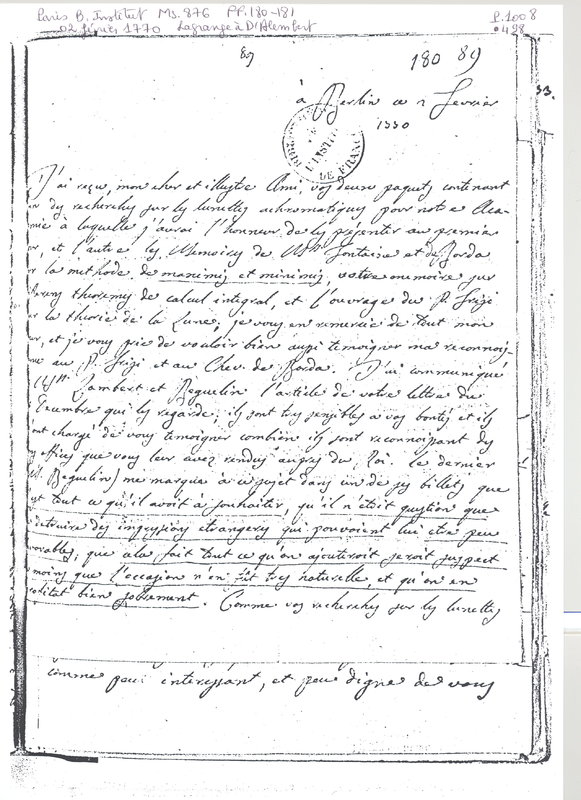 Paris B. Institut Ms. 876 PP. 180-181
P. 1008
02 février 1770 Lagrange à D'Alembert
0428
89
180 89
33.
à Berlin ce 2 fevrier
1770
DE FRANCE
J'ai reçu, mon cher et illustre Ami, vos deux paquets contenant
des recherches sur les lunettes achromatiques pour notre Aca-
mie à laquelle j'aurai l'honneur de les présenter au premier
r, et l'autre les Memoires de Mrs. Fontaine et de Borda
r la methode de maximis et minimis, votre memoire sur
theoremes de calcul integral, et l'ouvrage du P. Frisi
r la theorie de la Lune; je vous en remercie de tout mon
r, et je vous prie de vouloir bien aussi temoigner ma reconnois-
au P. Frisi et au Chev. de Borda. J'ai communiqué
Mrs. Lambert et Beguelin l'article de votre lettre du
Decembre qui les regarde; ils sont tres sensibles à vos bontés et ils
ont chargé de vous temoigner combien ils sont reconnoissant des
offices que vous leur avez rendus aupres du Roi. le dernier
Beguelin) me marque à ce sujet dans un de ses billets que
est tout ce qu'il avoit à souhaiter, qu'il n'étoit question que
detruire des impressions etrangeres qui pouvoient lui etre peu
vorables; que ala fait tout ce qu'on ajouteroit seroit suspect
moins que l'occasion n'en fût tres naturelle et qu'on en
profitat bien sobrement. Comme vos recherches sur les lunettes
comme peu intéressant, et peu digne de vous